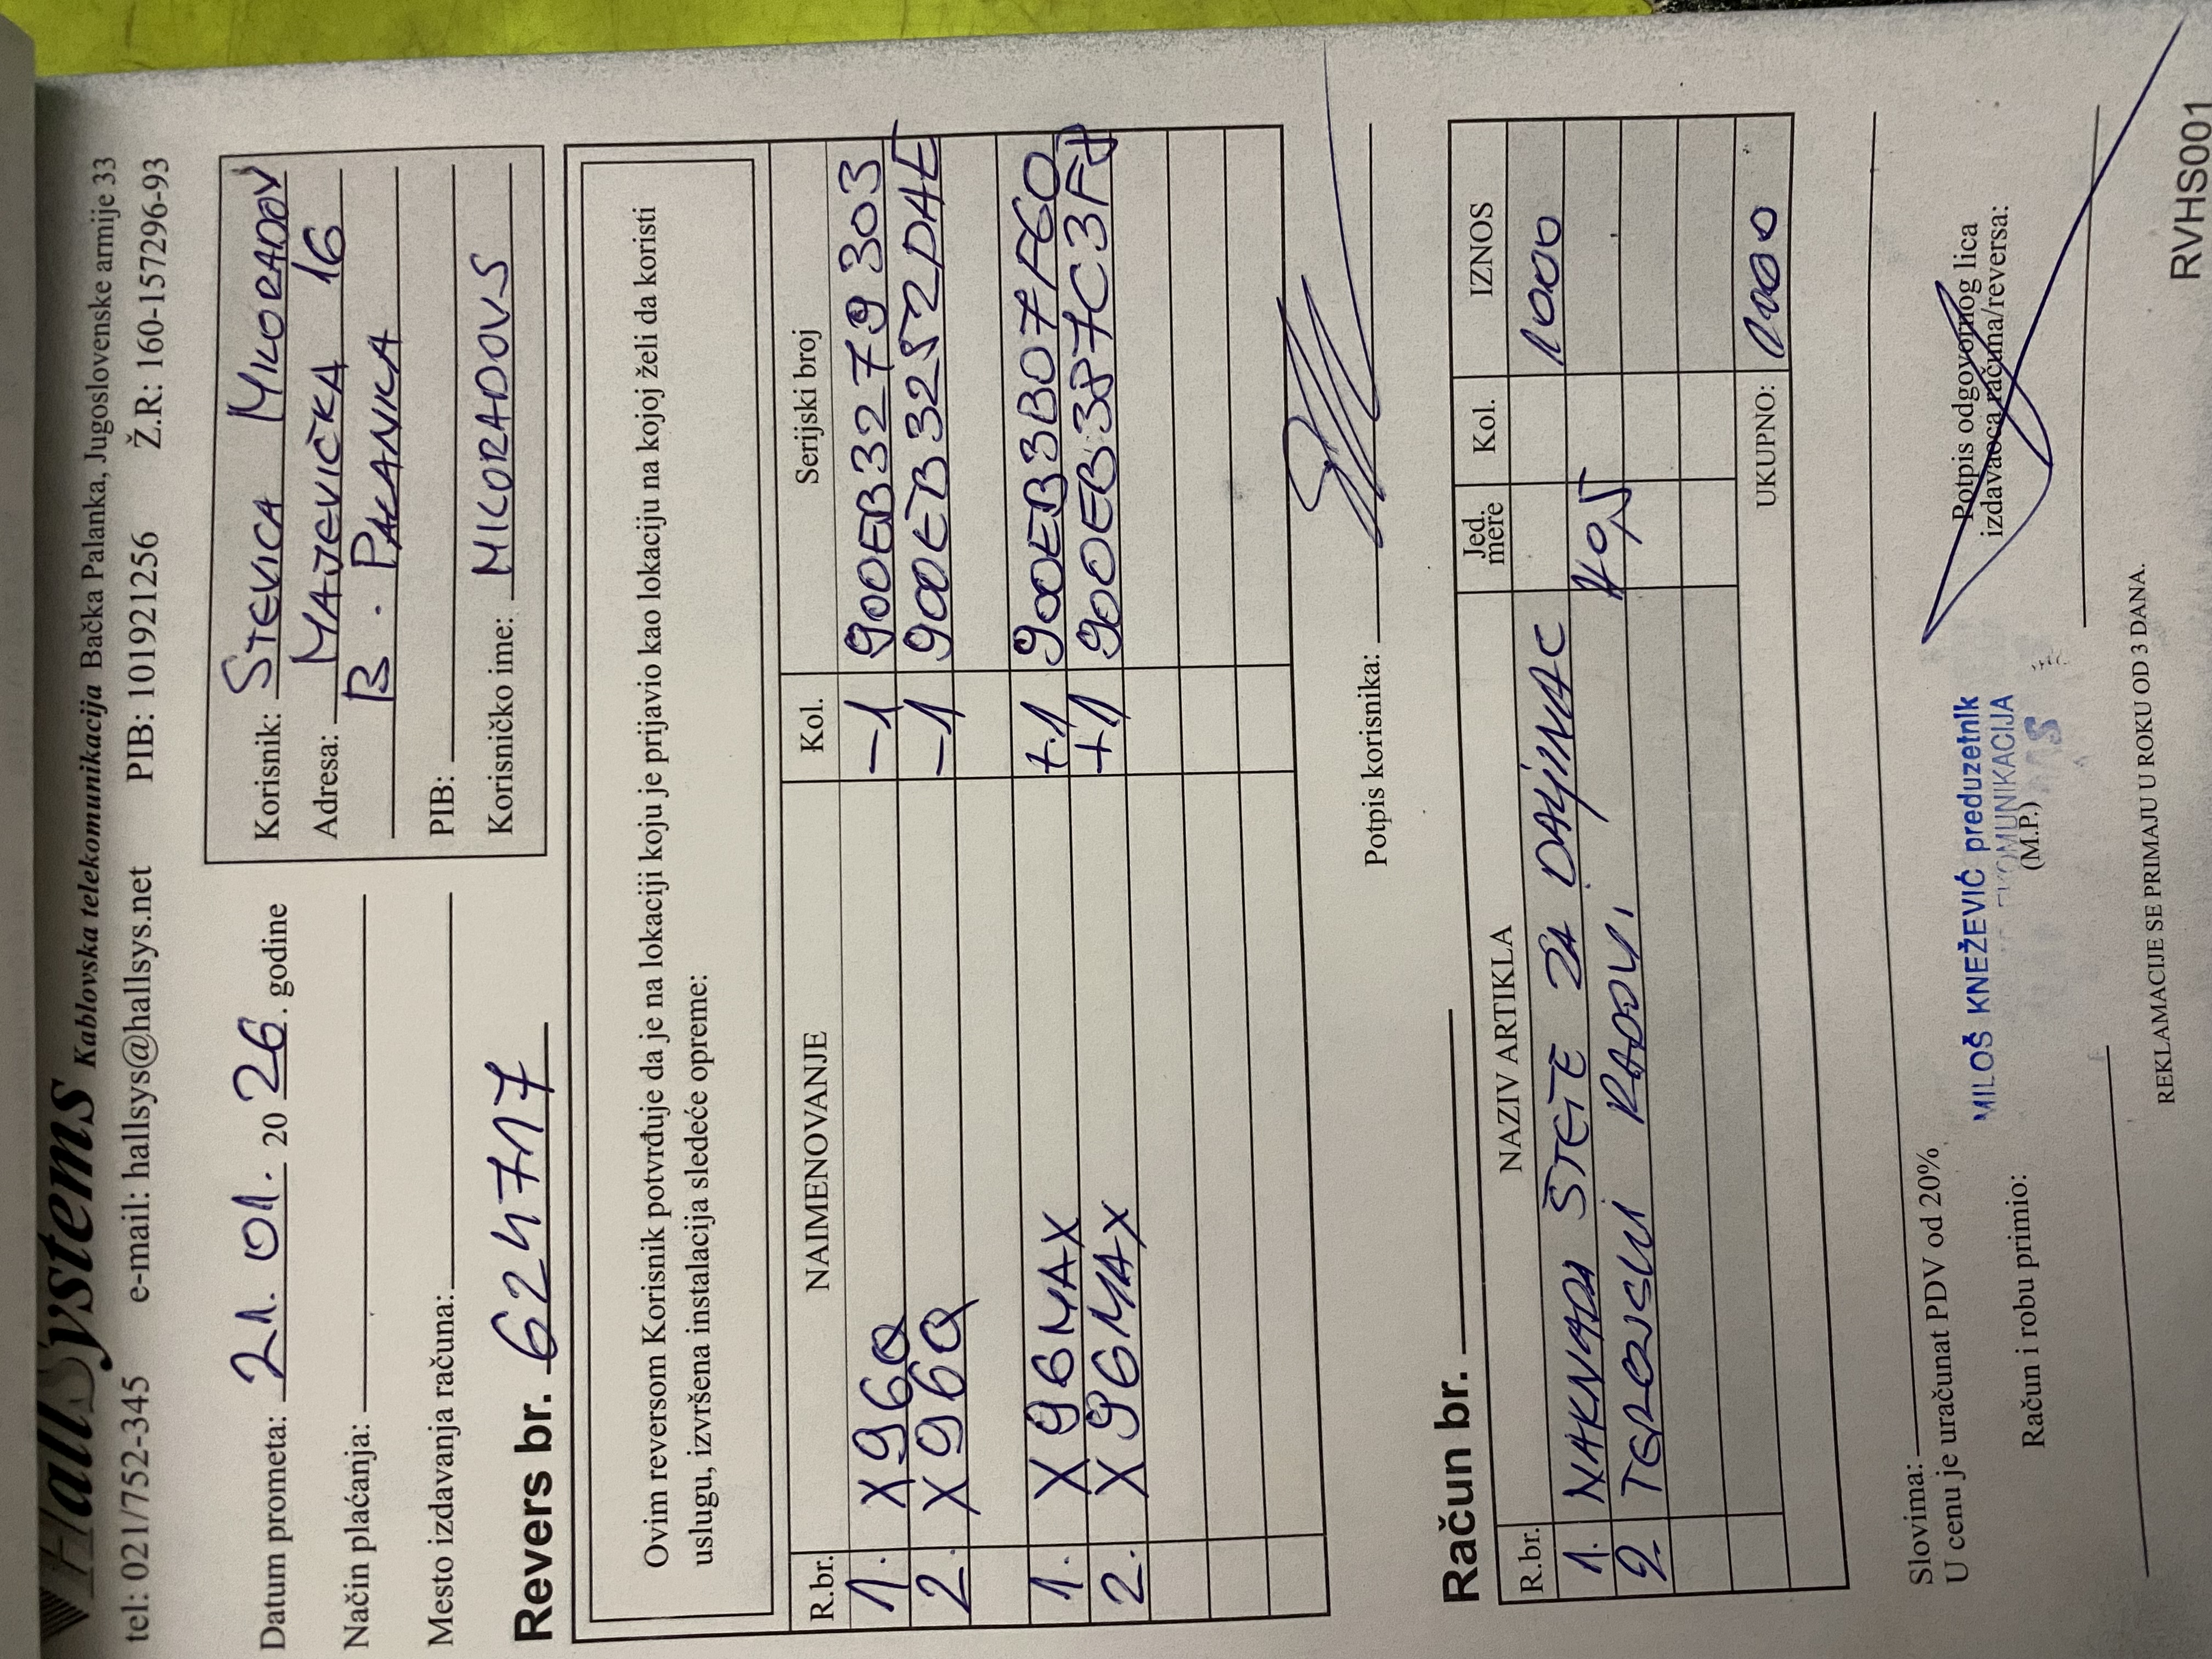 HallSystems Kablovska telekomunikacija Bačka Palanka, Jugoslovenske armije 33
tel: 021/752-345 e-mail: hallsys@hallsys.net PIB: 101921256 Ž.R.: 160-157296-93
Datum prometa: 21. 01. 2026. godine
Način plaćanja:
Mesto izdavanja računa:
Korisnik: STEVICA MILORADOV
Adresa: MAJEVIČKA 16
B. PALANKA
PIB:
Korisničko ime: MILORADOVS
Revers br. 6247117
Ovim reversom Korisnik potvrđuje da je na lokaciji koju je prijavio kao lokaciju na kojoj želi da koristi
uslugu, izvršena instalacija sledeće opreme:
R.br. NAIMENOVANJE Kol. Serijski broj
1. X96Q -1 900EB3279303
2. X96Q -1 900EB3252DAE
1. X96MAX +1 900EB3B07F60
2. X96MAX +1
Potpis korisnika:
Račun br.
R.br. NAZIV ARTIKLA Jed. mere Kol. IZNOS
1. NAKNADA ŠTETE ZA DALJINAC 1000
2. RADOVI
UKUPNO: 1000
Slovima:
U cenu je uračunat PDV od 20%
Račun i robu primio:
MILOŠ KNEŽEVIĆ preduzetnik
(M.P.)
Potpis odgovornog lica
izdavaoca računa/reversa:
REKLAMACIJE SE PRIMAJU U ROKU OD 3 DANA.
RVHS001